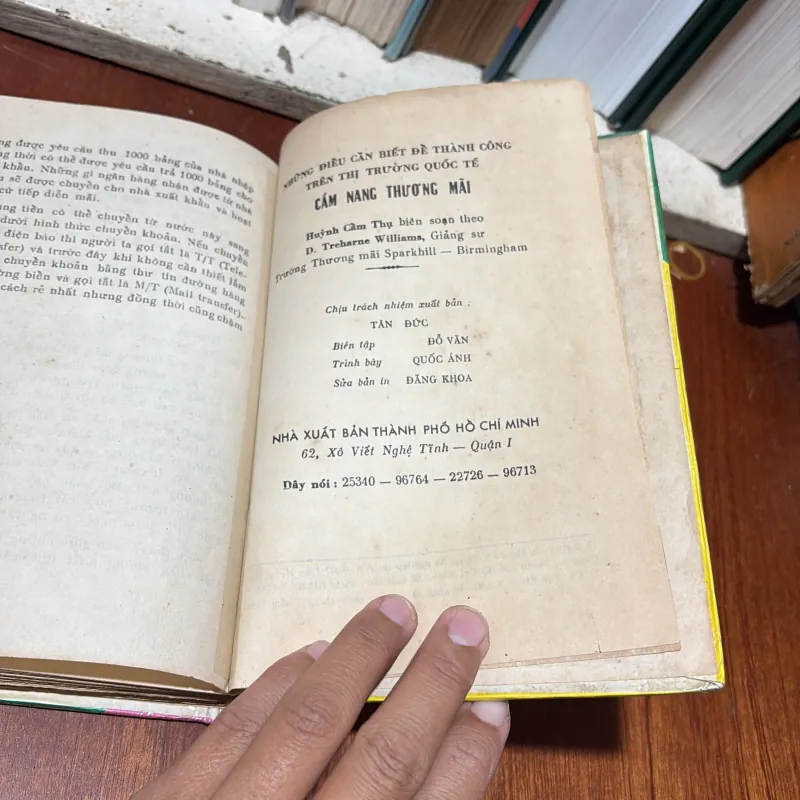 ng được yêu cầu thu 1000 bảng của nhà nhập
ng thời có thể được yêu cầu trả 1000 bảng cho
khẩu. Những gì ngân hàng nhận được từ nhà
u sẽ được chuyển cho nhà xuất khẩu và hoạt
cứ tiếp diễn mãi.
ng tiền có thể chuyển từ nước này sang
dưới hình thức chuyển khoản. Nếu chuyển
điện báo thì người ta gọi tắt là T/T (Tele-
sfer) và trước đây khi không cần thiết lắm
chuyển khoản bằng thư tín đường hàng
ờng biển và gọi tắt là M/T (Mail transfer).
cách rẻ nhất nhưng đồng thời cũng chậm
NHỮNG ĐIỀU CẦN BIẾT ĐỂ THÀNH CÔNG
TRÊN THỊ TRƯỜNG QUỐC TẾ
CẨM NANG THƯƠNG MÃI
Huỳnh Cầm Thụ biên soạn theo
D. Treharne Williams, Giảng sư
Trường Thương mãi Sparkhill — Birmingham
Chịu trách nhiệm xuất bản :
TÂN ĐỨC
Biên tập ĐỖ VĂN
Trình bày QUỐC ÁNH
Sửa bản in ĐĂNG KHOA
NHÀ XUẤT BẢN THÀNH PHỐ HỒ CHÍ MINH
62, Xô Viết Nghệ Tĩnh — Quận I
Dây nói : 25340 — 96764 — 22726 — 96713